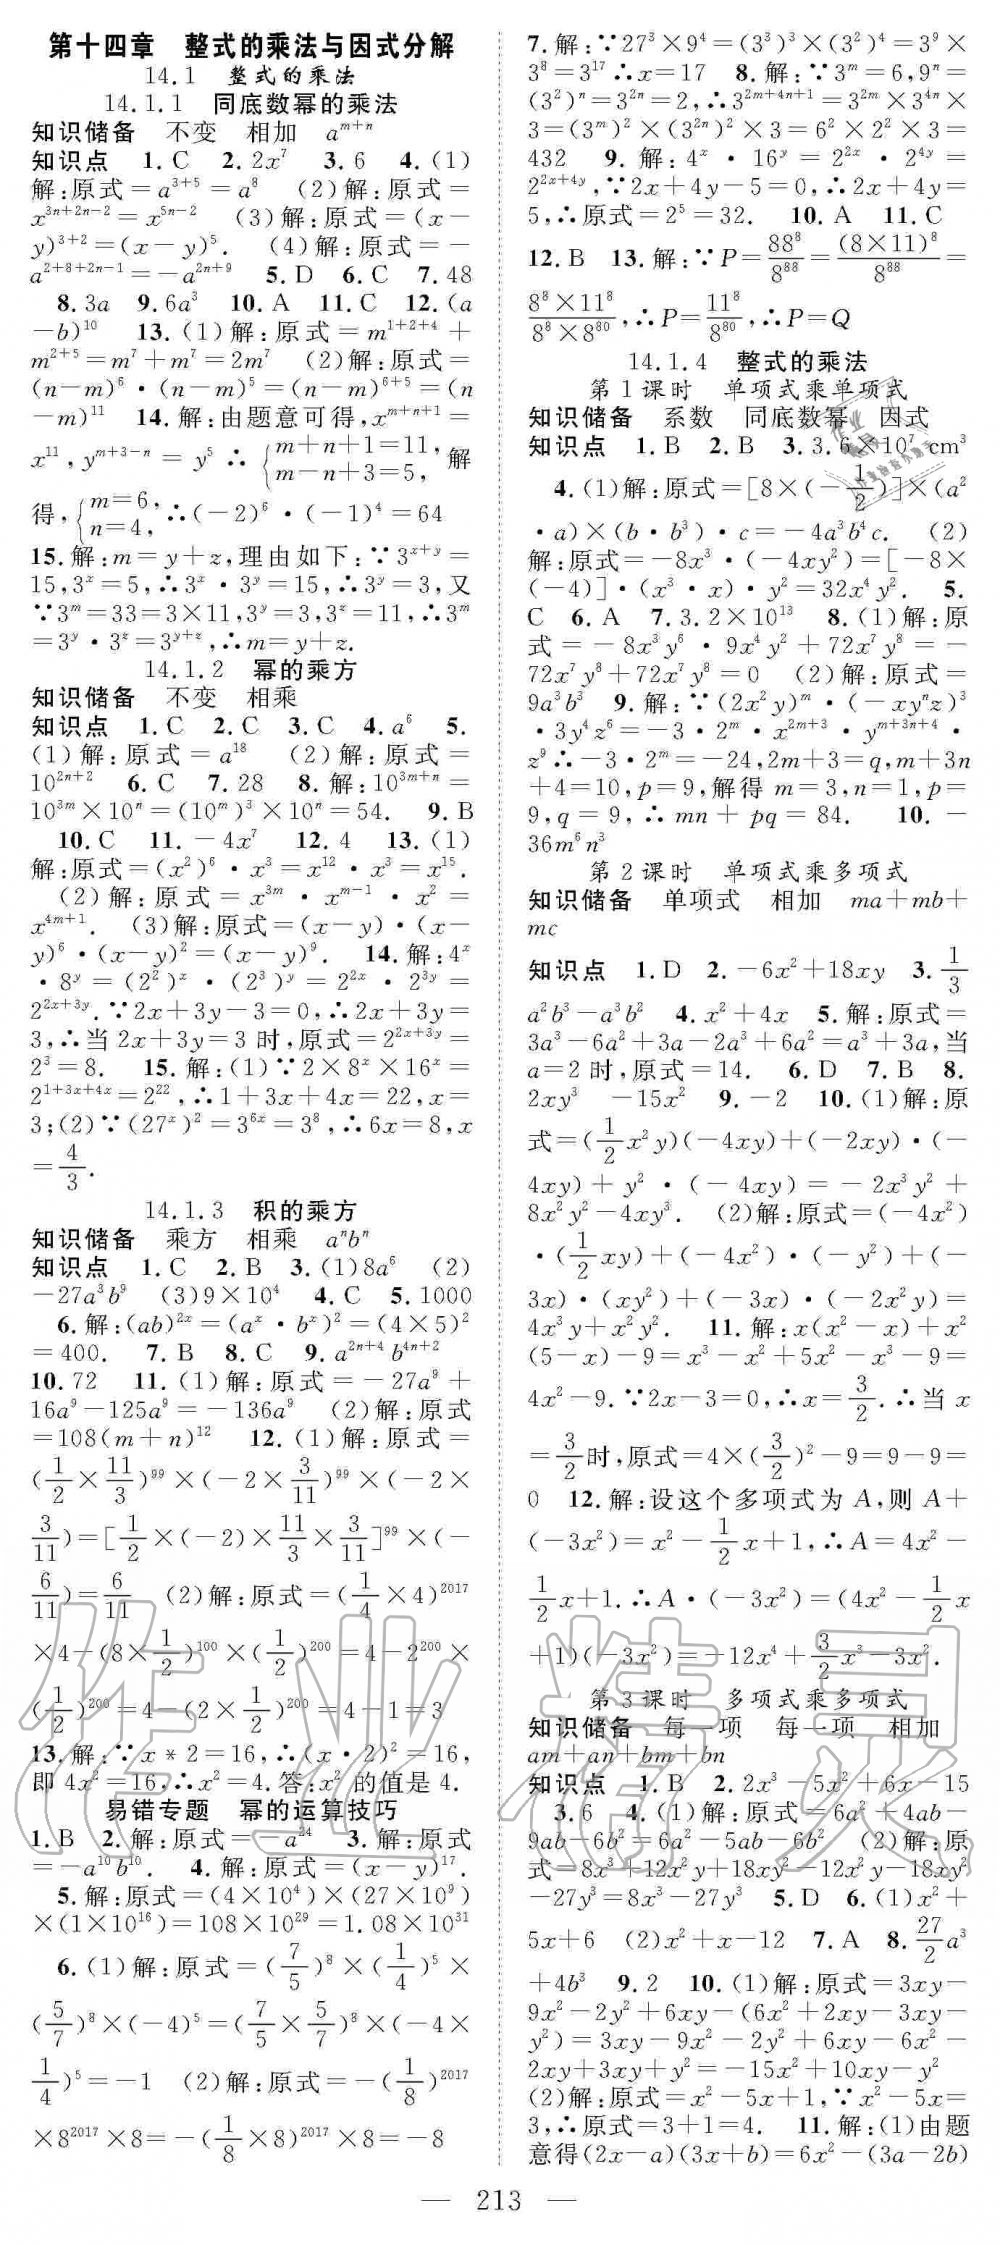 第十四章 整式的乘法与因式分解
14.1 整式的乘法
14.1.1 同底数幂的乘法
知识储备 不变 相加 a^{m+n}
知识点 1.C 2.2x^7 3.6 4.(1)
解:原式=a^{3+5}=a^8 (2)解:原式=
x^{3n+2n-2}=x^{5n-2} (3)解:原式=(x-
y)^{3+2}=(x-y)^5. (4)解:原式=-
a^{2+8+2n-1}=-a^{2n+9} 5.D 6.C 7.48
8.3a 9.6a^3 10.A 11.C 12.(a
-b)^{10} 13.(1)解:原式=m^{1+2+4}+
m^{2+5}=m^7+m^7=2m^7 (2)解:原式=
(n-m)^6·(n-m)^5=(n-m)^{6+5}=(n
-m)^{11} 14.解:由题意可得,x^{m+n+1}=
x^{11},y^{m+3-n}=y^5 ∴{m+n+1=11, m-n+3=5, 解
得,{m=6, n=4, ∴(-2)^6·(-1)^4=64
15.解:m=y+z,理由如下:∵3^{x+y}=
15,3^x=5,∴3^x·3^y=15,∴3^y=3,又
∵3^m=33=3×11,3^y=3,3^z=11,∴3^m
=3^y·3^z=3^{y+z},∴m=y+z.
14.1.2 幂的乘方
知识储备 不变 相乘
知识点 1.C 2.C 3.C 4.a^6 5.
(1)解:原式=a^{18} (2)解:原式=
10^{2n+2} 6.C 7.28 8.解:10^{3m+n}=
10^{3m}×10^n=(10^m)^3×10^n=54. 9.B
10.C 11.-4x^7 12.4 13.(1)
解:原式=(x^2)^6·x^3=x^{12}·x^3=x^{15}.
(2)解:原式=x^{3m}·x^{m-1}·x^2=
x^{4m+1}. (3)解:原式=(x-y)·(x-
y)^6·(x-y)^2=(x-y)^9. 14.解:4^x
·8^y=(2^2)^x·(2^3)^y=2^{2x}·2^{3y}=
2^{2x+3y}.∵2x+3y-3=0,∴2x+3y=
3,∴当2x+3y=3时,原式=2^{2x+3y}=
2^3=8. 15.解:(1)∵2×8^x×16^x=
2^{1+3x+4x}=2^{22},∴1+3x+4x=22,x=
3;(2)∵(27^x)^2=3^{6x}=3^8,∴6x=8,x
=4/3.
14.1.3 积的乘方
知识储备 乘方 相乘 a^nb^n
知识点 1.C 2.B 3.(1)8a^6 (2)
-27a^3b^9 (3)9×10^4 4.C 5.1000
6.解:(ab)^{2x}=(a^x·b^x)^2=(4×5)^2
=400. 7.B 8.C 9.a^{2n+4}b^{4n+2}
10.72 11.(1)解:原式=-27a^9+
16a^9-125a^9=-136a^9 (2)解:原式
=108(m+n)^{12} 12.(1)解:原式=
(1/2×11/3)^{99}×(-2×3/11)^{99}×(-2×
3/11)=[1/2×(-2)×11/3×3/11]^{99}×(-
6/11)=6/11 (2)解:原式=(1/4×4)^{2017}
×4-(8×1/2)^{100}×(1/2)^{200}=4-2^{200}×
(1/2)^{200}=4-(2×1/2)^{200}=4-1=3
13.解:∵x*2=16,∴(x·2)^2=16,
即4x^2=16,∴x^2=4.答:x^2的值是4.
易错专题 幂的运算技巧
1.B 2.解:原式=-a^{24} 3.解:原式
=-a^{10}b^{10}. 4.解:原式=(x-y)^{17}.
5.解:原式=(4×10^4)×(27×10^9)
×(1×10^{16})=108×10^{29}=1.08×10^{31}
6.(1)解:原式=(7/5)^8×(1/4)^5×
(5/7)^8×(-4)^5=(7/5×5/7)^8×(-4×
1/4)^5=-1 (2)解:原式=-(1/8)^{2017}
×8^{2017}×8=-(1/8×8)^{2017}×8=-8
7.解:∵27^3×9^4=(3^3)^3×(3^2)^4=3^9×
3^8=3^{17}∴x=17 8.解:∵3^m=6,9^n=
(3^2)^n=3^{2n}=2,∴3^{2m+4n+1}=3^{2m}×3^{4n}×
3=(3^m)^2×(3^{2n})^2×3=6^2×2^2×3=
432 9.解:4^x·16^y=2^{2x}·2^{4y}=
2^{2x+4y},∵2x+4y-5=0,∴2x+4y=
5,∴原式=2^5=32. 10.A 11.C
12.B 13.解:∵P=88^8/8^{88}=(8×11)^8/8^{88}=
8^8×11^8/8^8×8^{80},∴P=11^8/8^{80},∴P=Q
14.1.4 整式的乘法
第1课时 单项式乘单项式
知识储备 系数 同底数幂 因式
知识点 1.B 2.B 3.3.6×10^7 cm^3
4.(1)解:原式=[8×(-1/2)]×(a^2
·a)×(b·b^3)·c=-4a^3b^4c. (2)
解:原式=-8x^3·(-4xy^2)=[-8×
(-4)]·(x^3·x)·y^2=32x^4y^2. 5.
C 6.A 7.3.2×10^{13} 8.(1)解:原
式=-8x^3y^6·9x^4y^2+72x^7y^8=-
72x^7y^8+72x^7y^8=0 (2)解:原式=
9a^3b^3 9.解:∵(2x^2y)^m·(-xy^nz)^3
·3y^4z^6=-3·2^m·x^{2m+3}·y^{m+3n+4}·
z^9∴-3·2^m=-24,2m+3=q,m+3n
+4=10,p=9,解得m=3,n=1,p=
9,q=9,∴mn+pq=84. 10.-
36m^6n^3
第2课时 单项式乘多项式
知识储备 单项式 相加 ma+mb+
mc
知识点 1.D 2.-6x^2+18xy 3.1/3
a^2b^3-a^3b^2 4.x^2+4x 5.解:原式=
3a^3-6a^2+3a-2a^3+6a^2=a^3+3a,当
a=2时,原式=14. 6.D 7.B 8.
2xy^3 -15x^2 9.-2 10.(1)解:原
式=(1/2x^2y)(-4xy)+(-2xy)·(-
4xy)+y^2·(-4xy)=-2x^3y^2+
8x^2y^2-4xy^3. (2)解:原式=(-4x^2)
·(1/2xy)+(-4x^2)·(-y^2)+(-
3x)·(xy^2)+(-3x)·(-2x^2y)=
4x^3y+x^2y^2. 11.解:x(x^2-x)+x^2
(5-x)-9=x^3-x^2+5x^2-x^3-9=
4x^2-9.∵2x-3=0,∴x=3/2.∴当x
=3/2时,原式=4×(3/2)^2-9=9-9=
0 12.解:设这个多项式为A,则A+
(-3x^2)=x^2-1/2x+1,∴A=4x^2-
1/2x+1.∴A·(-3x^2)=(4x^2-1/2x
+1)(-3x^2)=-12x^4+3/2x^3-3x^2.
第3课时 多项式乘多项式
知识储备 每一项 每一项 相加
am+an+bm+bn
知识点 1.B 2.2x^3-5x^2+6x-15
3.6 4.(1)解:原式=6a^2+4ab-
9ab-6b^2=6a^2-5ab-6b^2 (2)解:原
式=8x^3+12x^2y+18xy^2-12x^2y-18xy^2
-27y^3=8x^3-27y^3 5.D 6.(1)x^2+
5x+6 (2)x^2+x-12 7.A 8.27/2a^3
+4b^3 9.2 10.(1)解:原式=3xy-
9x^2-2y^2+6xy-(6x^2+2xy-3xy-
y^2)=3xy-9x^2-2y^2+6xy-6x^2-
2xy+3xy+y^2=-15x^2+10xy-y^2
(2)解:原式=x^2-5x+1,∵x^2-5x=
3,∴原式=3+1=4. 11.解:(1)由题
意得(2x-a)(3x+b)=6x^2-(3a-2b)
— 213 —
作业精灵